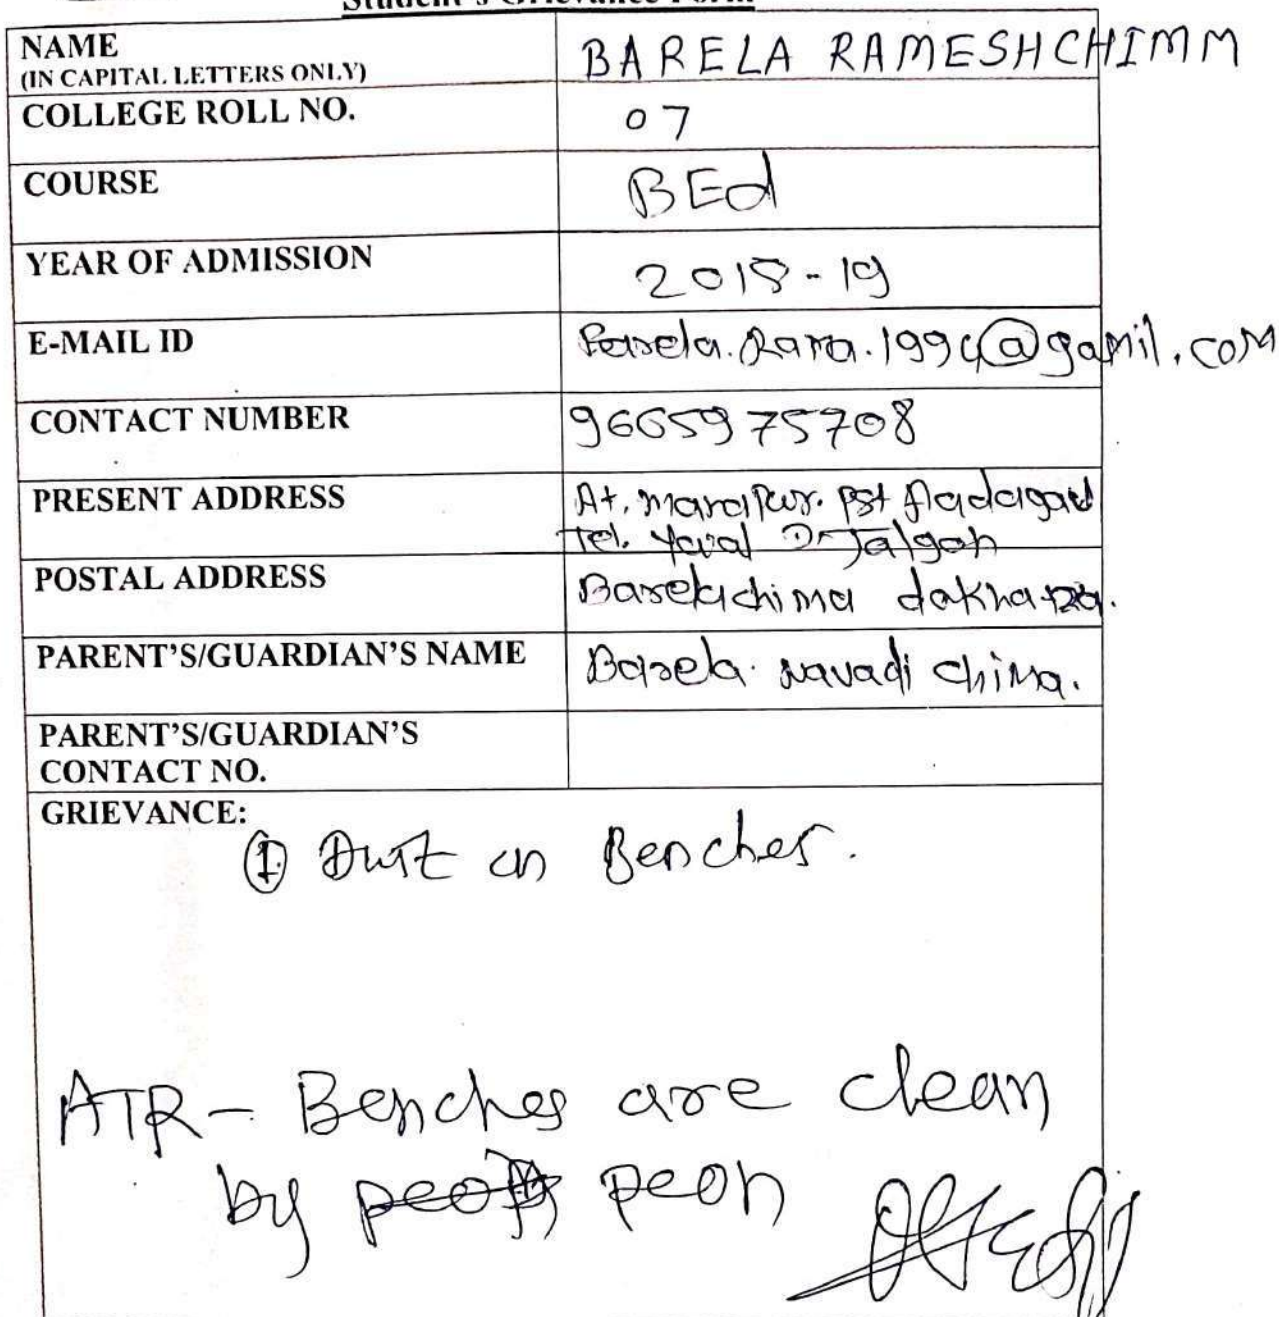 Student's Grievance Form
NAME
(IN CAPITAL LETTERS ONLY)
BARELA RAMESHCHIMM
COLLEGE ROLL NO.
07
COURSE
BEd
YEAR OF ADMISSION
2018-19
E-MAIL ID
@gamil.com
CONTACT NUMBER
9665975708
PRESENT ADDRESS
At. pst
POSTAL ADDRESS
Barelachima
PARENT'S/GUARDIAN'S NAME
Barela. navadi china.
PARENT'S/GUARDIAN'S
CONTACT NO.
GRIEVANCE:
① Dust on Benches.
ATR - Benches are clean
by peon